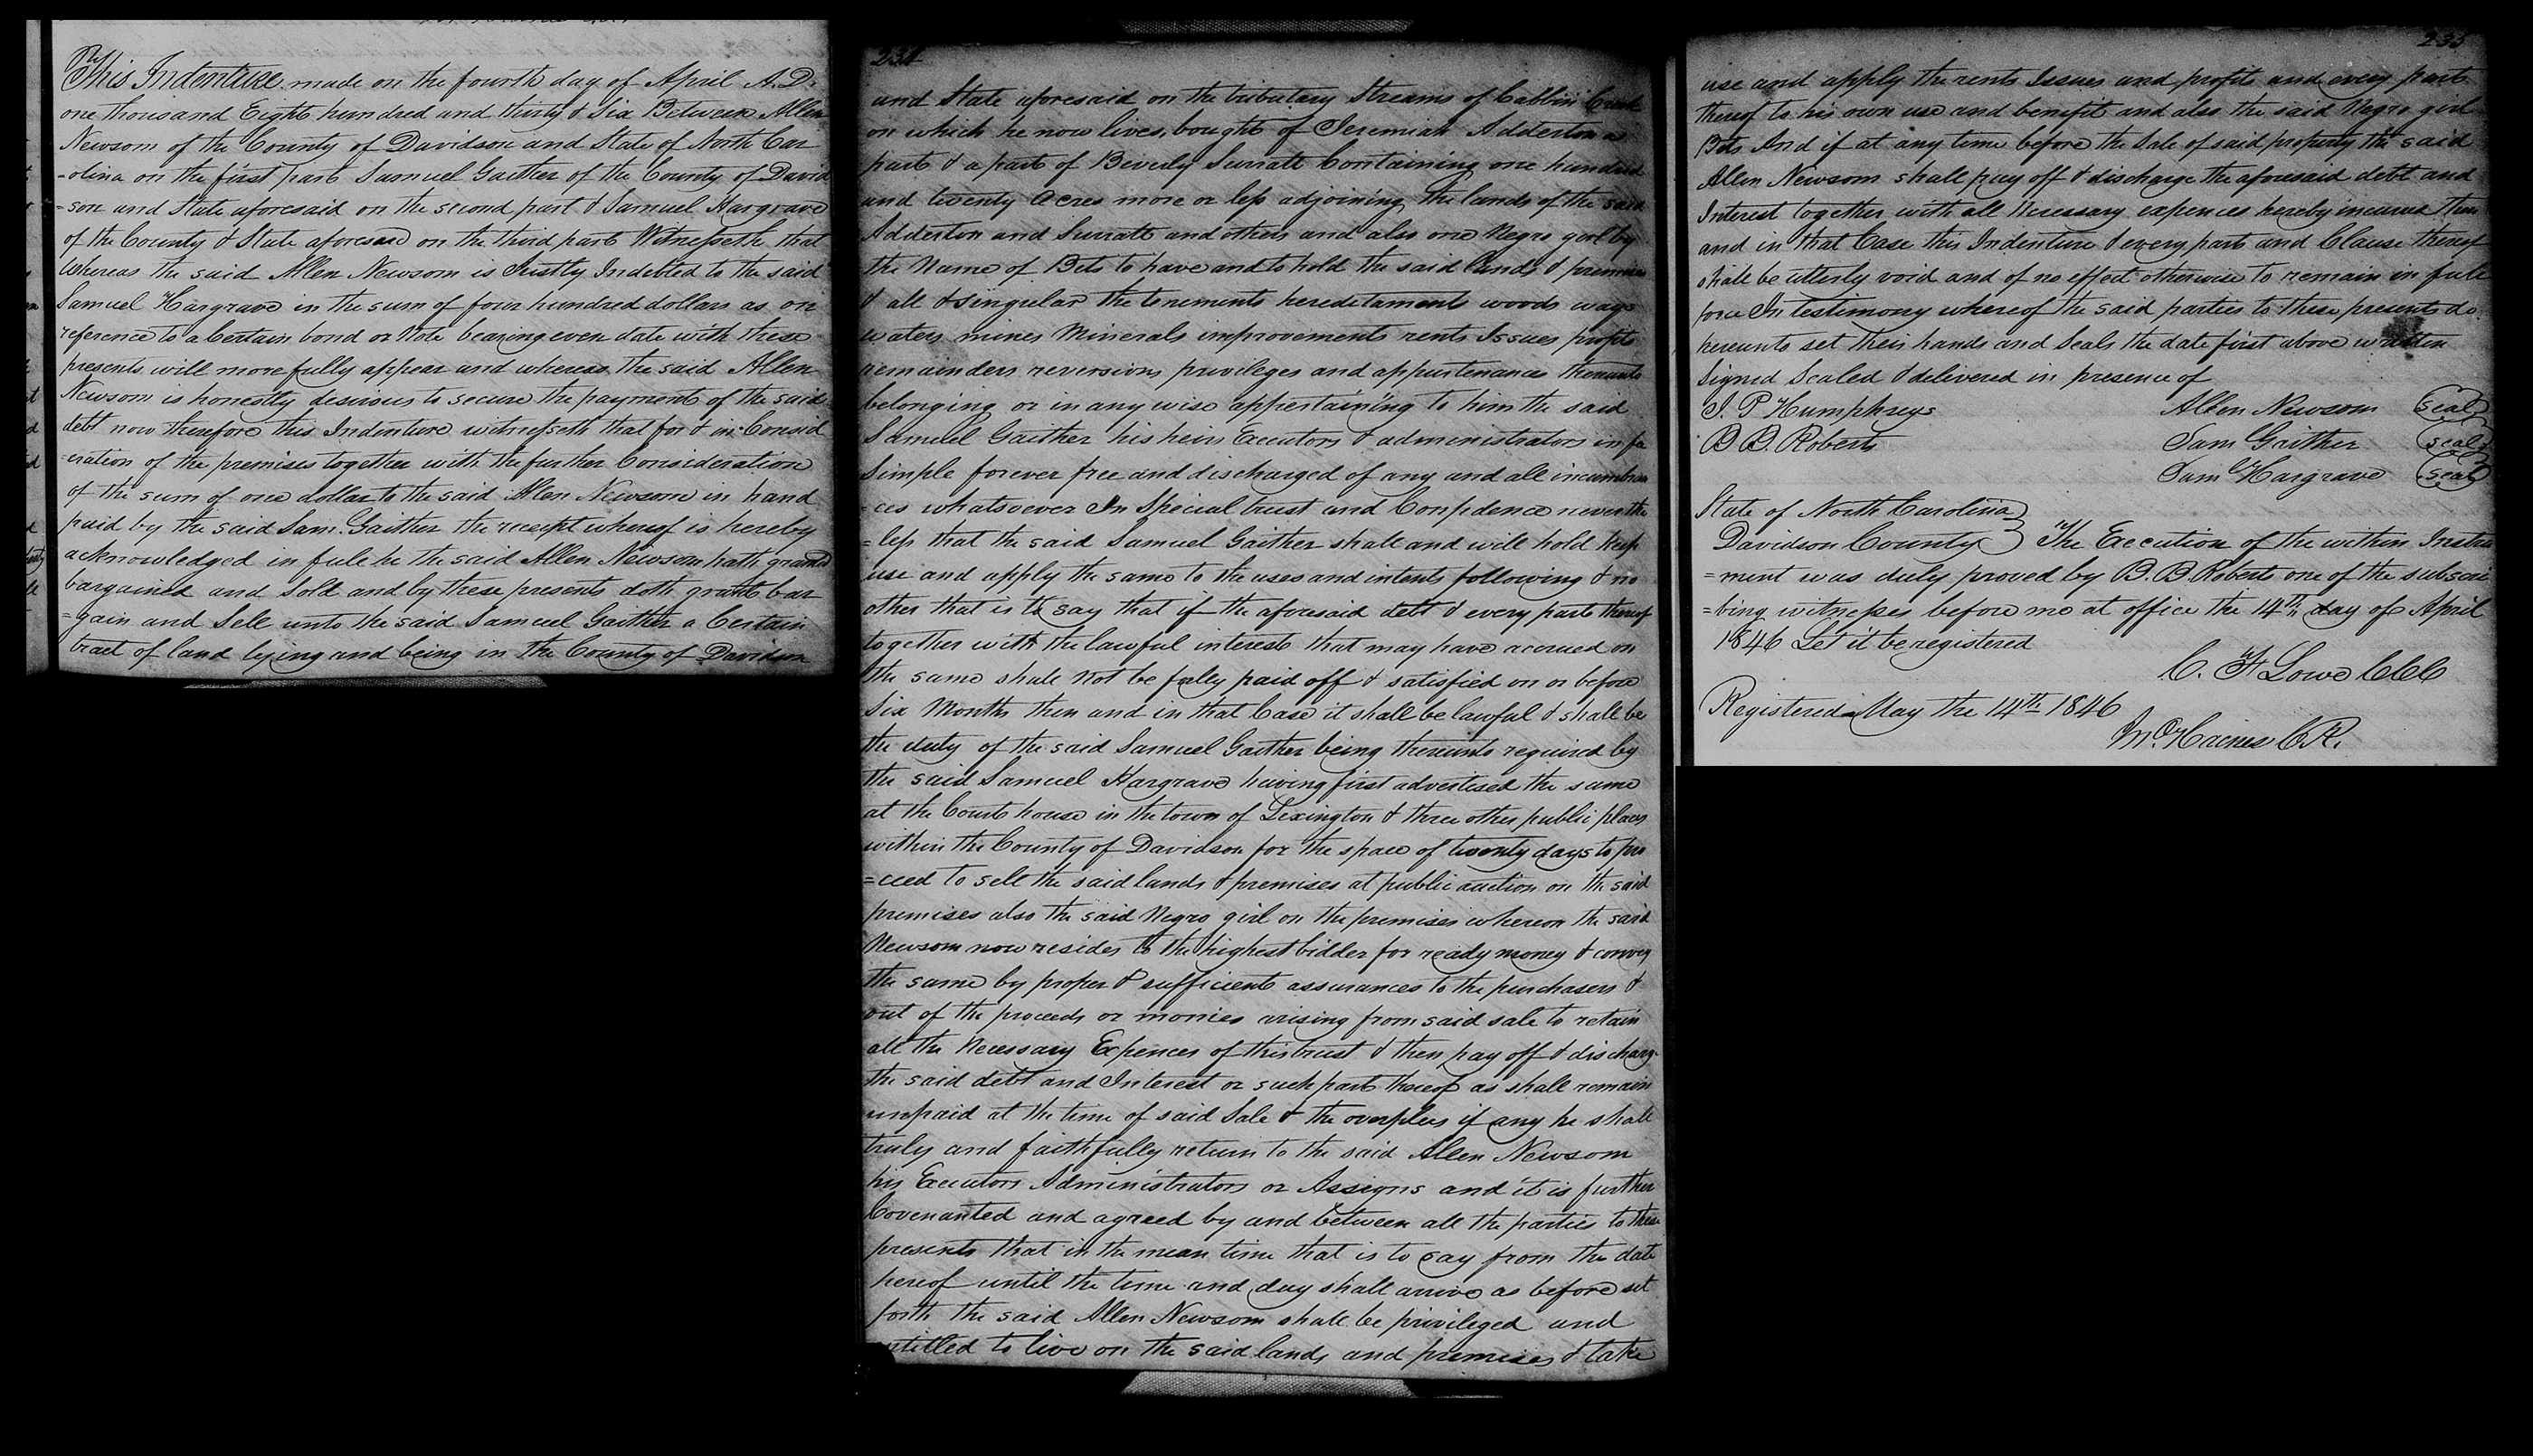 This Indenture made on the fourth day of April A.D.
one thousand Eight hundred and thirty & Six Between Allen
Newsom of the County of Davidson and State of North Car
=olina on the first part Samuel Gaither of the County of David
=son and State aforesaid on the second part & Samuel Hargrave
of the County & State aforesaid on the third part Witnesseth that
Whereas the said Allen Newsom is Justly Indebted to the said
Samuel Hargrave in the sum of four hundred dollars as on
reference to a Certain bond or Note bearing even date with these
presents will more fully appear and whereas the said Allen
Newsom is honestly desirous to secure the payment of the said
debt now therefore this Indenture witnesseth that for & in Consid
=eration of the premises together with the further Consideration
of the sum of one dollar to the said Allen Newsom in hand
paid by the said Sam. Gaither the receipt whereof is hereby
acknowledged in full he the said Allen Newsom hath granted
bargained and Sold and by these presents doth grant bar
=gain and Sell unto the said Samuel Gaither a Certain
tract of land lying and being in the County of Davidson
234
and State aforesaid on the tributary Streams of Cabbin Creek
on which he now lives, bought of Jeremiah Adderton a
part & a part of Beverly Surratt Containing one hundred
and twenty Acres more or less adjoining the lands of the said
Adderton and Surratt and others and also one Negro girl by
the Name of Bets to have and to hold the said lands & premises
& all & singular the tenements hereditaments woods ways
waters mines Minerals improvements rents Issues profits
remainders reversions privileges and appurtenances thereunto
belonging or in any wise appertaining to him the said
Samuel Gaither his heirs Executors & administrators in fee
Simple forever free and discharged of any and all incumbran
=ces whatsoever In Special trust and Confidence neverthe
=less that the said Samuel Gaither shall and will hold keep
use and apply the same to the uses and intents following & no
other that is to say that if the aforesaid debt & every part thereof
together with the lawful interest that may have accrued on
the same shall not be fully paid off & satisfied on or before
Six Months then and in that Case it shall be lawful & shall be
the duty of the said Samuel Gaither being thereunto required by
the said Samuel Hargrave having first advertised the same
at the Court house in the town of Lexington & three other public places
within the County of Davidson for the space of twenty days to pro
=ceed to sell the said lands & premises at public auction on the said
premises also the said Negro girl on the premises whereon the said
Newsom now resides to the highest bidder for ready money & convey
the same by proper & sufficient assurances to the purchasers &
out of the proceeds or monies arising from said sale to retain
all the Necessary Expences of this trust & then pay off & discharge
the said debt and Interest or such part thereof as shall remain
unpaid at the time of said Sale & the overplus if any he shall
truly and faithfully return to the said Allen Newsom
his Executors Administrators or Assigns and it is further
Covenanted and agreed by and between all the parties to these
presents that in the mean time that is to say from the date
hereof until the time and day shall arrive as before set
forth the said Allen Newsom shall be privileged and
entitled to live on the said lands and premises & take
235
use and apply the rents Issues and profits and every part
thereof to his own use and benefit and also the said Negro girl
Bets And if at any time before the Sale of said property the said
Allen Newsom shall pay off & discharge the aforesaid debt and
Interest together with all Necessary expences hereby incured then
and in that Case this Indenture & every part and Clause thereof
shall be utterly void and of no effect otherwise to remain in full
force In testimony whereof the said parties to these presents do
hereunto set their hands and Seals the date first above written
Signed Sealed & delivered in presence of
J. P Humphreys Allen Newsom (seal)
B B. Roberts Sam Gaither (seal)
Saml Hargrave (seal)
State of North Carolina
Davidson County The Execution of the within Instru
=ment was duly proved by B. B. Roberts one of the subscri
=bing witnesses before me at office the 14th day of April
1846 Let it be registered
C. F Lowe CCC
Registered May the 14th 1846
Jno. Haines C.R.